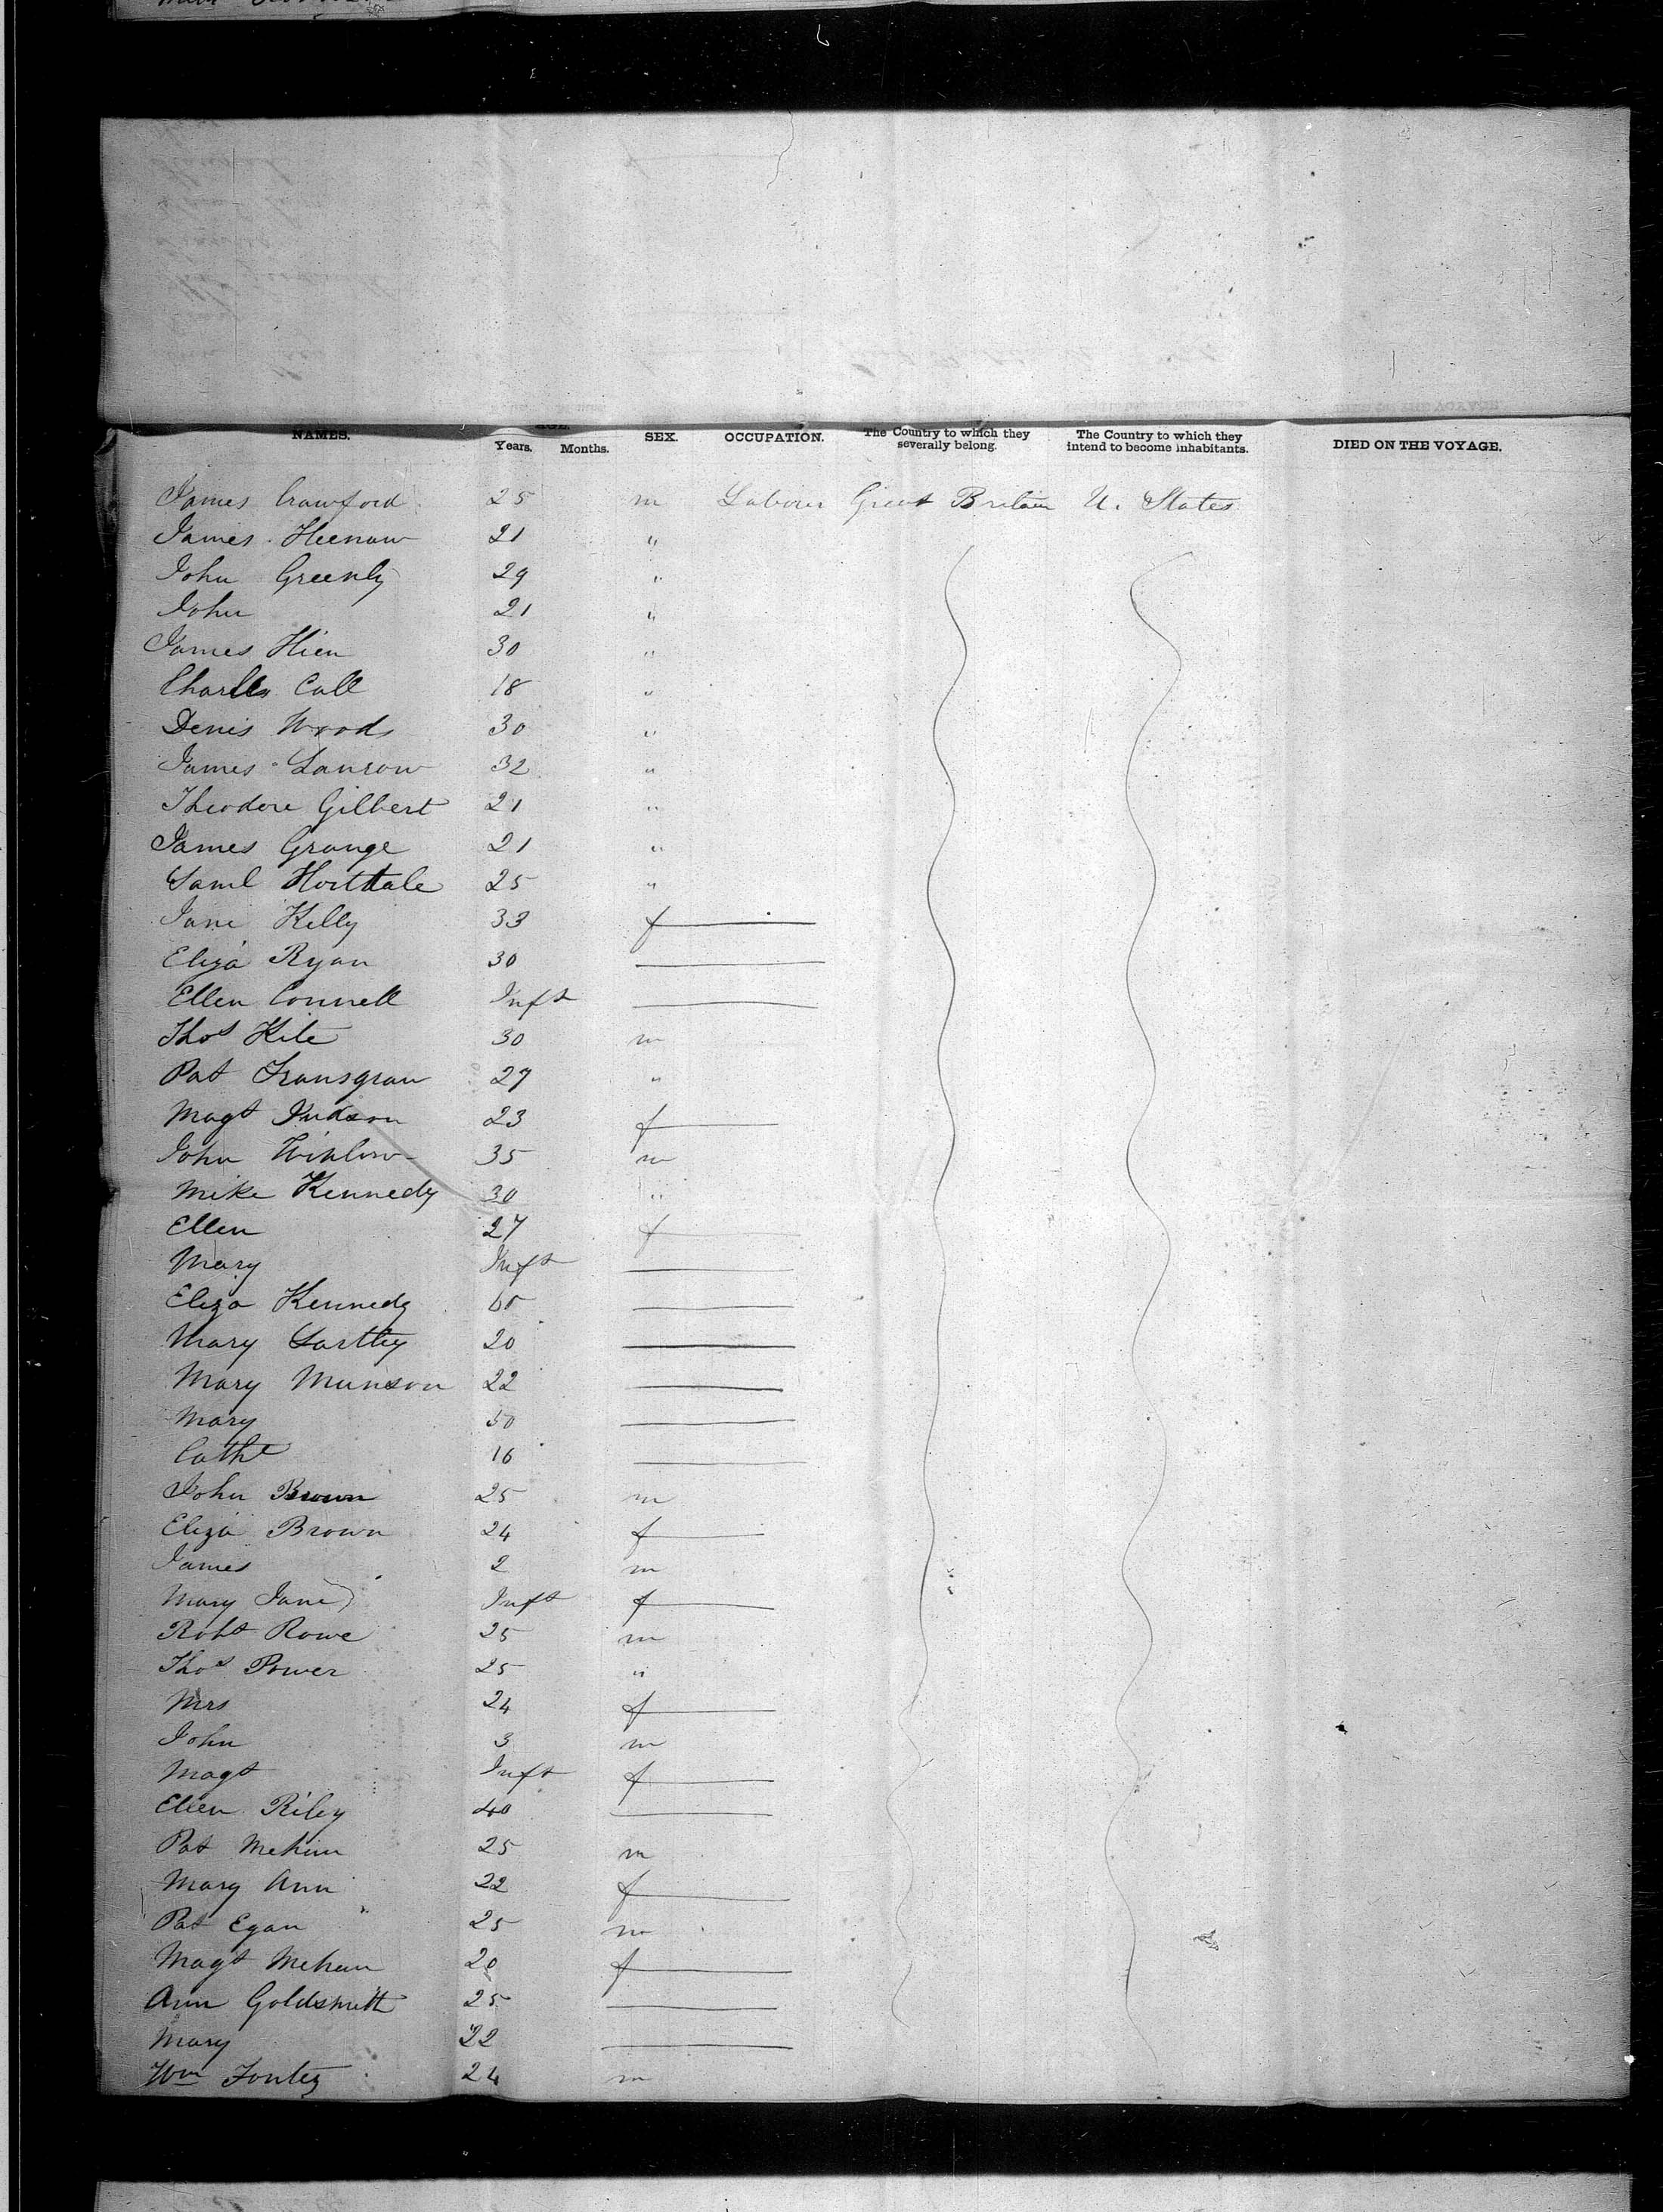 NAMES. AGE. Years. Months. SEX. OCCUPATION. The Country to which they severally belong. The Country to which they intend to become inhabitants. DIED ON THE VOYAGE.
James Crawford 25 m Laborer Great Britain U. States
James Heenaw 21 "
John Greenly 29 "
John 21 "
James Hien 30 "
Charles Call 18 "
Denis Woods 30 "
James Lanrow 32 "
Theodore Gilbert 21 "
James Grange 21 "
Saml Horttale 25 "
Jane Kelly 33 f
Eliza Ryan 30
Ellen Connell Inft
Thos Kite 30 m
Pat 27 "
Magt Judson 23 f
John 35 m
Mike Kennedy 30 "
Ellen 27 f
Mary Inft
Eliza Kennedy
Mary 20
Mary Munson 22
Mary 50
Cathe 16
John Brown 25 m
Eliza Brown 24 f
James 2 m
Mary Jane Inft f
Robt Rowe 25 m
Thos Power 25 "
Mrs 24 f
John 3 m
Magt Inft f
Ellen Riley 40
Pat Mehan 25 m
Mary Ann 22 f
Pat Egan 25 m
Magt Mehan 20 f
Ann Goldsmith 25
Mary 22
Wm 24 m